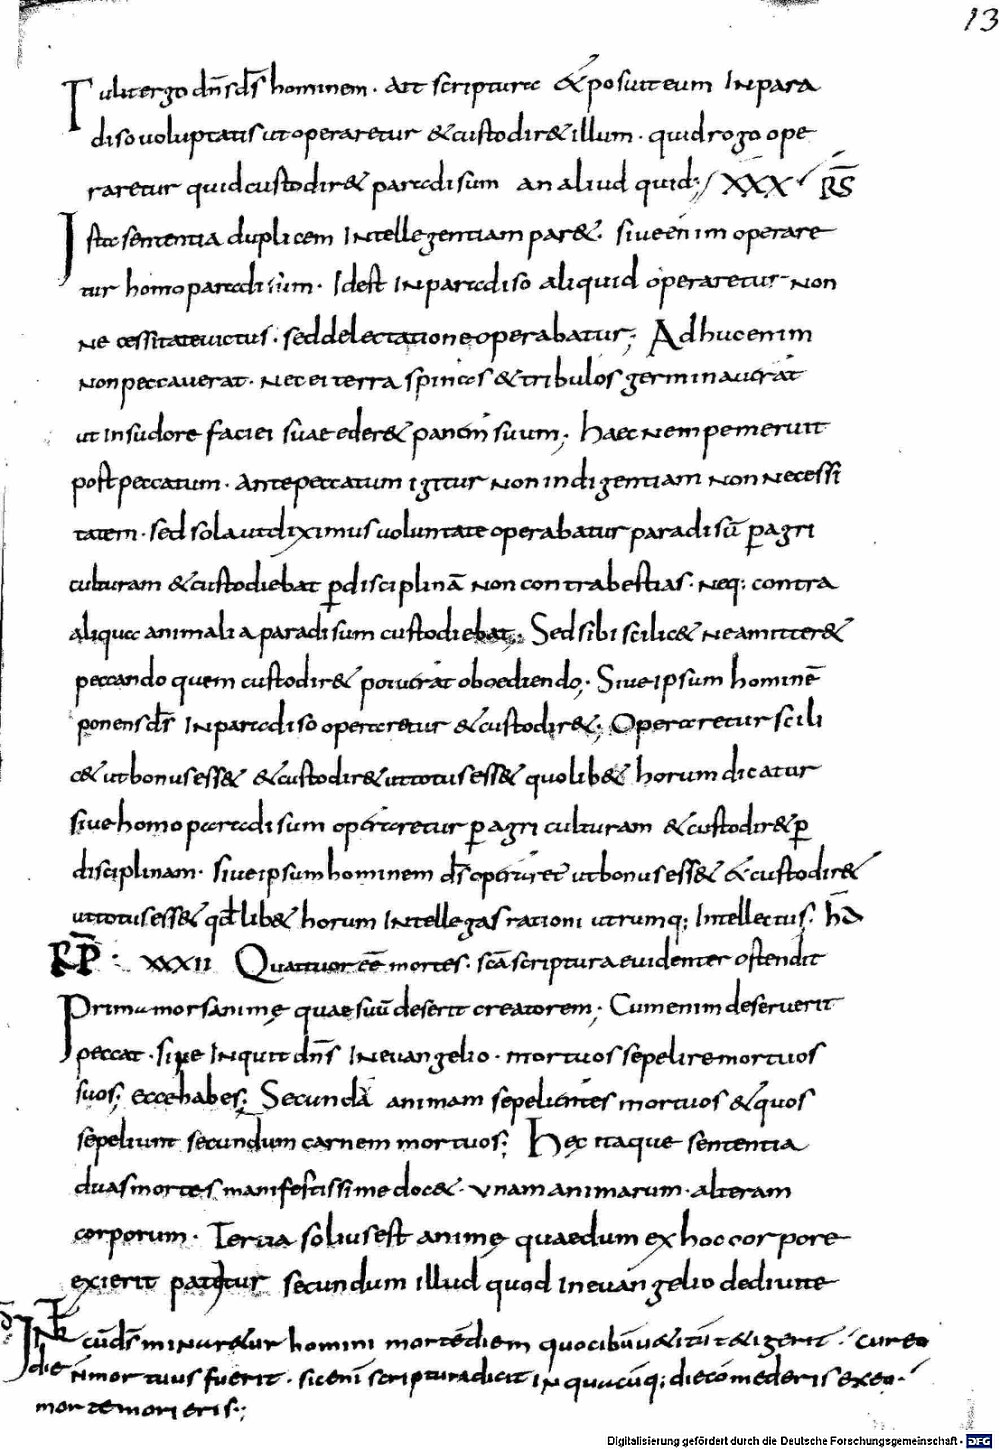 13
Tulit ergo dn̄s ds̄ hominem · Ait scriptura & posuit eum In para
diso uoluptatis ut operaretur & custodir& illum · quid rogo ope
raretur quid custodir& paradisum an aliud quid; XXXI RS̄
Ista sententia duplicem Intellegentiam par&. Siue enim operare
tur homo paradisum · Id est In paradiso aliquid operaretur non
necessitate uictus · sed delectatione operabatur; Adhuc enim
non peccauerat · nec ei terra spinas & tribulos germinauerat
ut in sudore faciei suae eder& panem suum; haec nempe meruit
post peccatum · Ante peccatum igitur non indigentiam non necessi
tatem · sed sola ut diximus uoluntate operabatur paradisū p agri
culturam & custodiebat p disciplinā non contra bestias · neq; contra
aliqua animalia paradisum custodiebat; Sed sibi scilic& ne amitter&
peccando quem custodir& potuerat oboediendo; Siue ipsum hominē
ponens ds̄ In paradiso operaretur & custodir&; Operaretur scili
c& ut bonus ess& & custodir& ut totus ess& quolib& horum dicatur
siue homo paradisum operaretur p agri culturam & custodir& p
disciplinam · siue ipsum hominem ds̄ operaret' ut bonus ess& & custodir&
ut totus ess& qdlib& horum Intellegas rationi utrumq; Intellectus; h̄a
RP̄ : XXXII Quattuor eē mortes · scā scriptura euidenter ostendit
Prima mors animę quae suū deserit creatorem; Cum enim deseruerit
peccat · siue Inquit dn̄s In euangelio · mortuos sepelire mortuos
suos; ecce habes; Secundā animam sepelientes mortuos & quos
sepeliunt secundum carnem mortuos; Hęc itaque sententia
duas mortes manifestissime doc& · unam animarum · alteram
corporum · Tertia solius est animę quae dum ex hoc corpore
exierit patitur secundum illud quod in euangelio de diuite
cūds̄ minar&ur homini mortē diem quocibū u&itū t&igerit · cur eo
die n̄ mortuus fuerit · sic enī scriptura dicit in quacūq; die comederis ex eo ·
morte morieris;
Digitalisierung gefördert durch die Deutsche Forschungsgemeinschaft - DFG